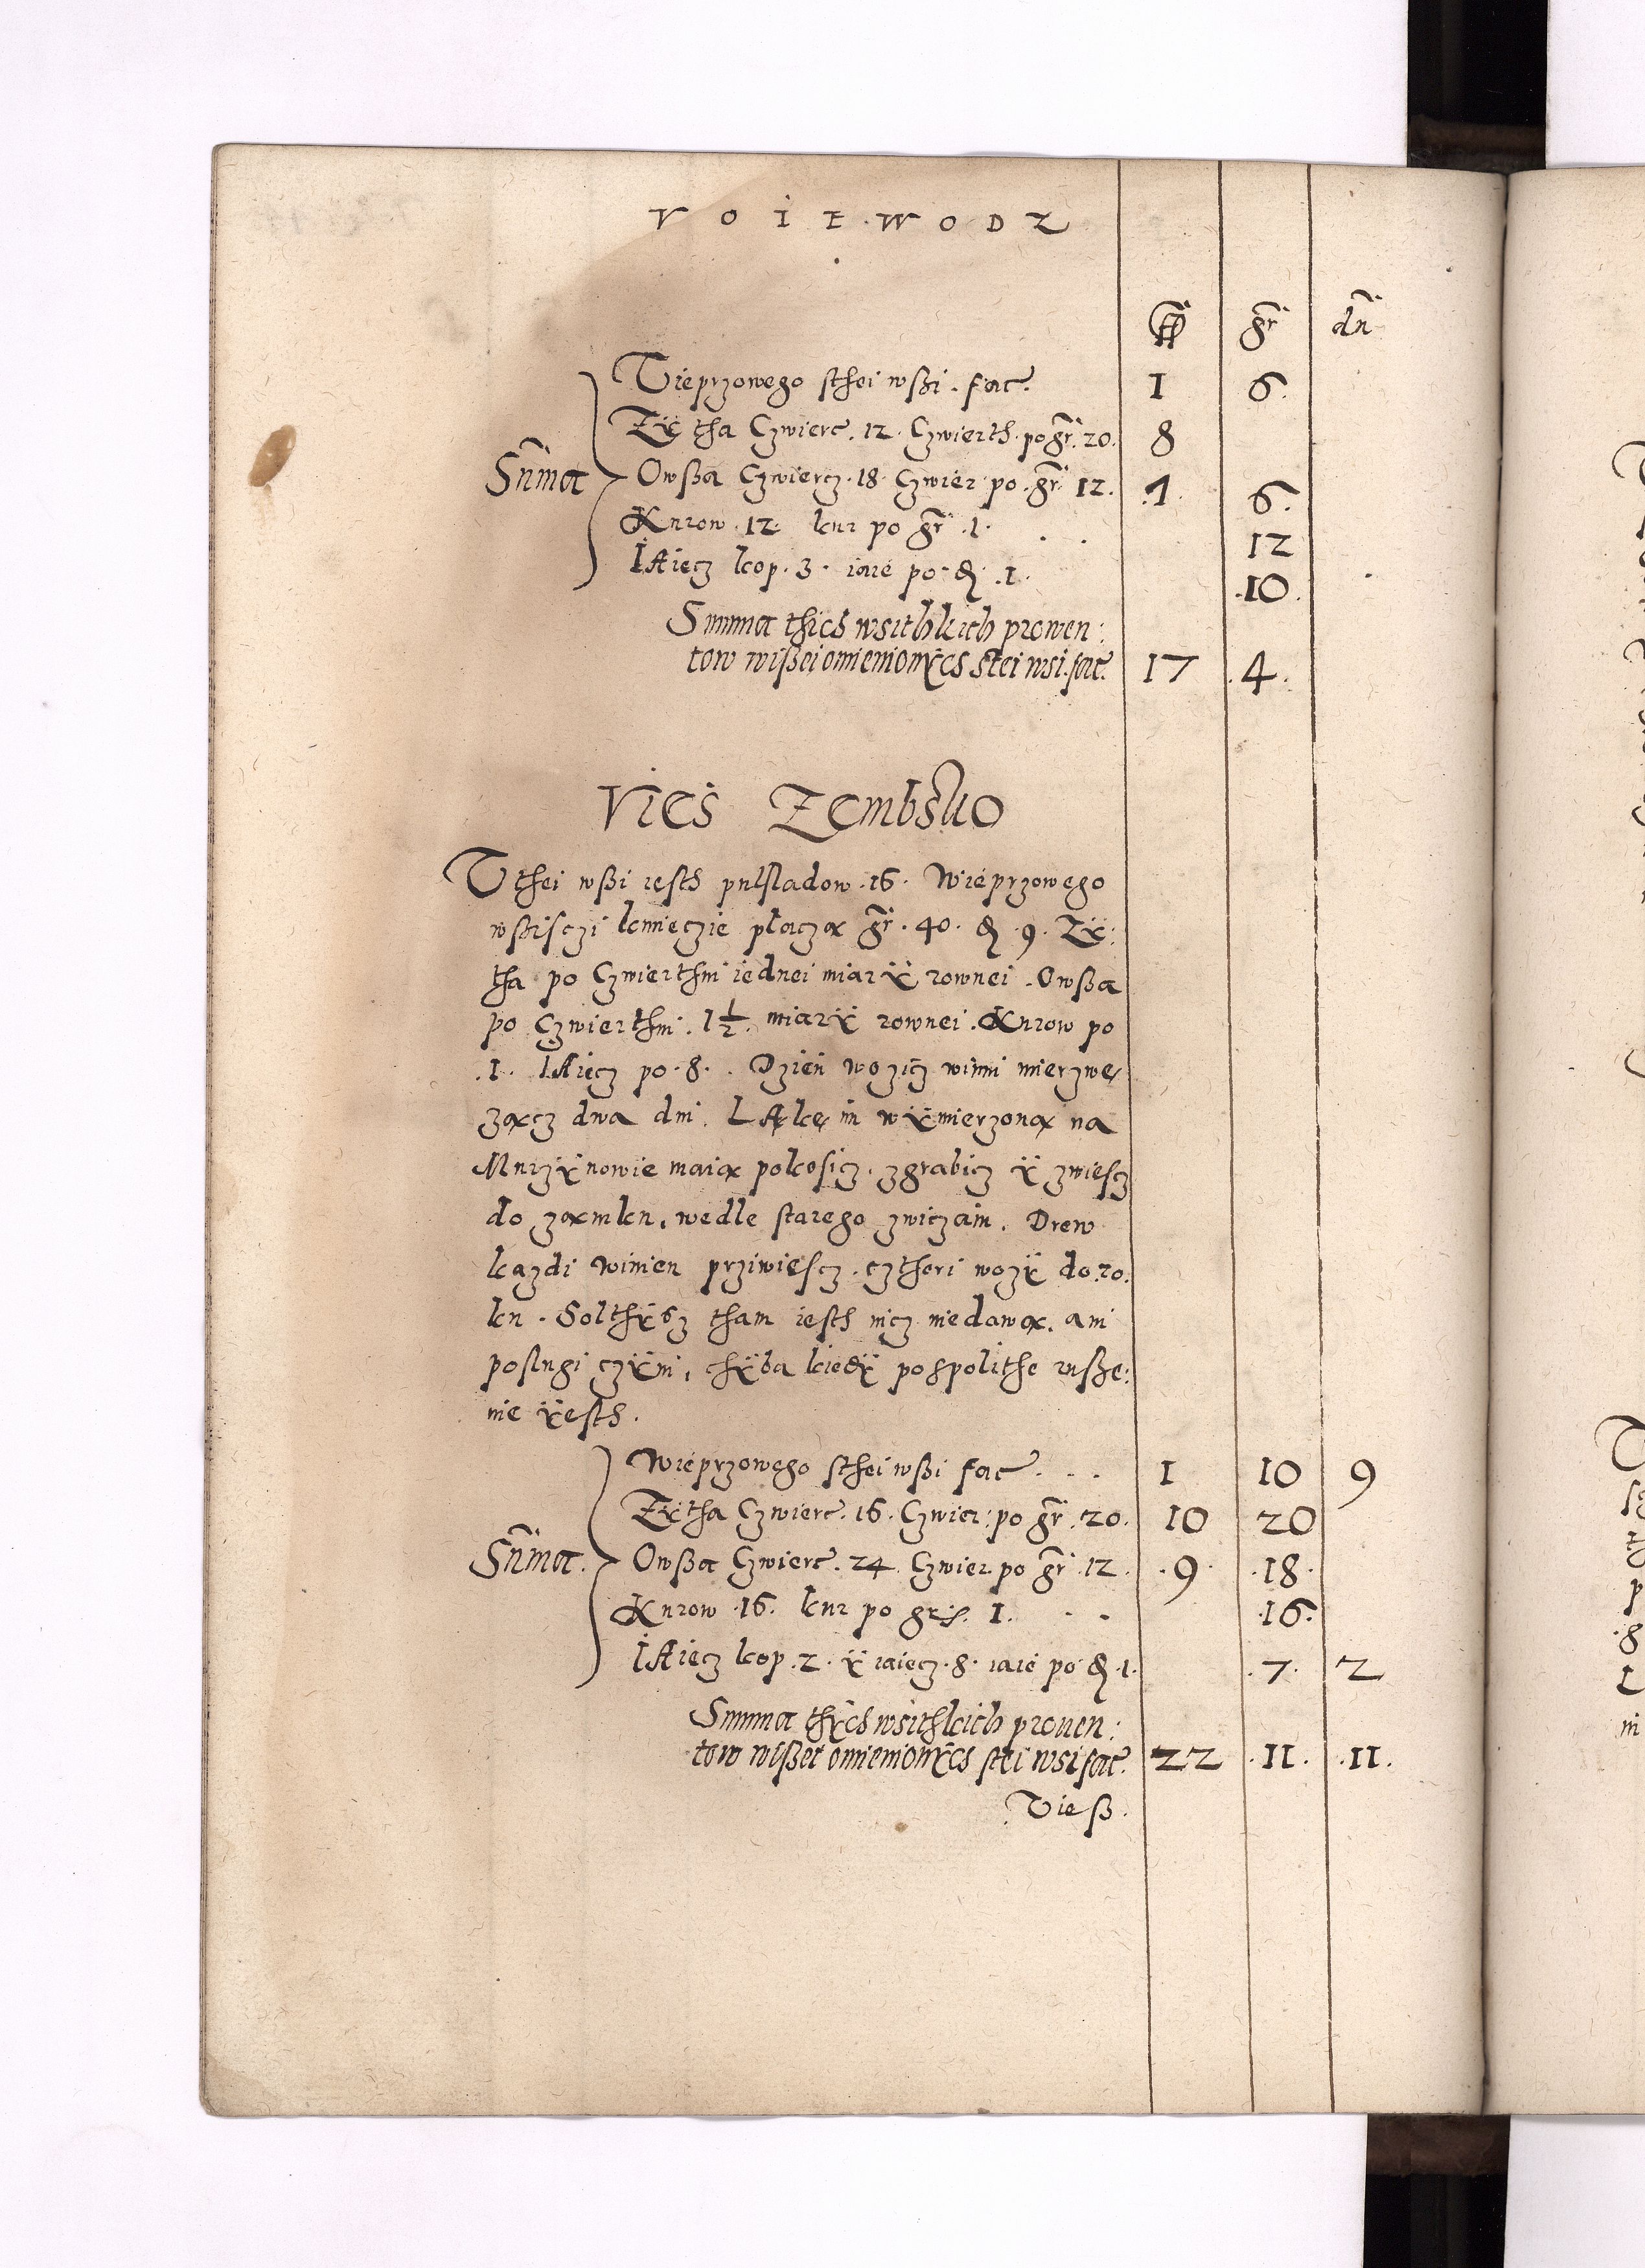 VOIEWODZ
fl gr dn
Vieprzowego sthei wßi . fac. 1 6
Zÿtha Czwierc. 12. Czwierth. po gr. 20. 8
Sum̃a Owßa Czwiercz. 18. Czwier po. gr. 12. .7. 6.
Kurow .12. kur po gr .1. . . 12
IAiecz kop. 3. iaie po. d. .1. .10.
Summa thich wsithkich prowen:
tow wißei omienionÿch stei wsi. fac. 17 .4.
Vies Zembsuo
Vthei wßi iesth pulsladow .16. Wieprzowego
wßisczi kmieczie płacza gr. 40. d. 9. Zÿ:
tha po Czwierthni iednei miarÿ rownei. Owßa
po Czwierthni. 1 1/2. miarÿ rownei. Kurow po
.1. IAiecz po. 8. . Dzień wozicz winni mierzwę
zącz dwa dni. LAkę im wÿmierzoną na
Murzÿnowie maią pokosicz. zgrabicz ÿ zwiescz
do zamku, wedle starego zwiczaiu. Drew
kazdi winien prziwiescz. cztheri wozÿ do. ro.
ku. Solthÿsz tham iesth nicz niedawa. ani
poslugi czÿni, chÿba kiedÿ pospolithe rusze:
nie ÿesth.
Wieprzowego sthei wßi fac. . . 1 10 9
Zÿtha Czwierc. 16. Czwier: po gr. 20. 10 20
Sum̃a. Owßa Czwierc. 24. Czwier. po gr. 12. .9. .18.
Kurow .16. kur po gr. 1. . . .16.
IAiecz kop. 2. ÿ iaiecz. 8. iaie po d. 1. .7. 2
Summa thÿch wsithkich prouen:
tow wißei omienionÿch stei wsi fac. 22 .11. .11.
Vieß.